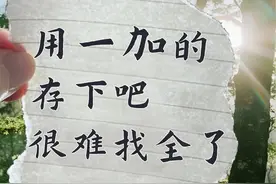 用一加的
存下吧
很难找全了